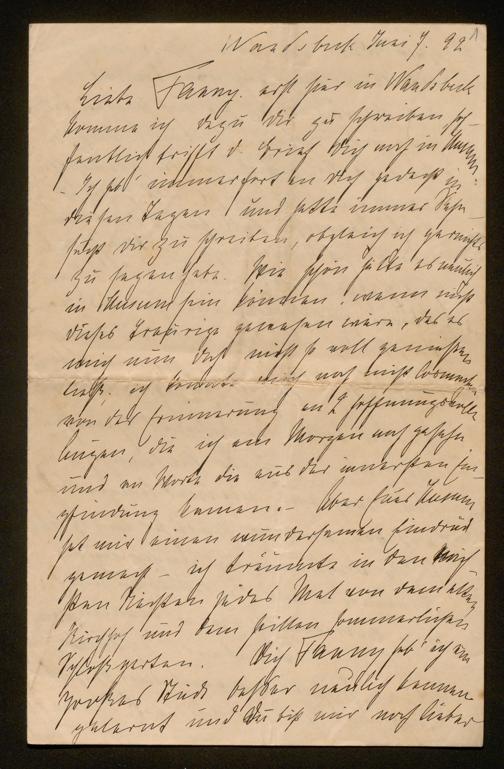 Wandsbeck Juni 7. 92
Liebe Fanny. erst hier in Wandsbeck
komme ich dazu Dir zu schreiben hof-
fentlich trifft d. Brief Dich noch in Husum.
- Ich hab' immerfort an Dich gedacht in
diesen Tagen und hatte immer Sehn-
sucht Dir zu schreiben, obgleich ich garnichts
zu sagen habe. Wie schön hätte es neulich
in Husum sein können, wenn nicht
dieses Traurige gewesen wäre, das es
mich nun doch nicht so voll genießen
ließ. ich konnte mich noch nicht losmachen
von der Erinnerung an 2 hoffnungsvolle
Augen, die ich am Morgen noch gesehn
und an Worte die aus der innersten Em-
pfindung kamen. - Aber Euer Husum
hat mir einen wundersamen Eindruck
gemacht - ich träumte in den näch-
sten Nächten jedes Mal von dem alten
Kirchhof und dem stillen sommerlichen
Schloßgarten. Dich Fanny hab' ich ein
großes Stück besser neulich kennen
gelernt und Du bist mir noch lieber